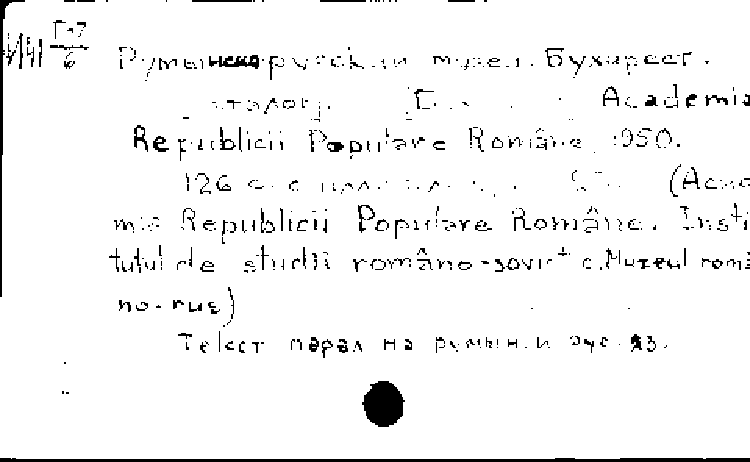 Г-7
6
Румынско-русский музей. Бухарест.
Academia
Republicii Populare Române, 1950.
126 с. с (Acade
mia Republicii Populare Române. Insti
tutul de studii româno-sovietic. Muzeul româ
no-rus)
Текст парал на румын. и рус. яз.